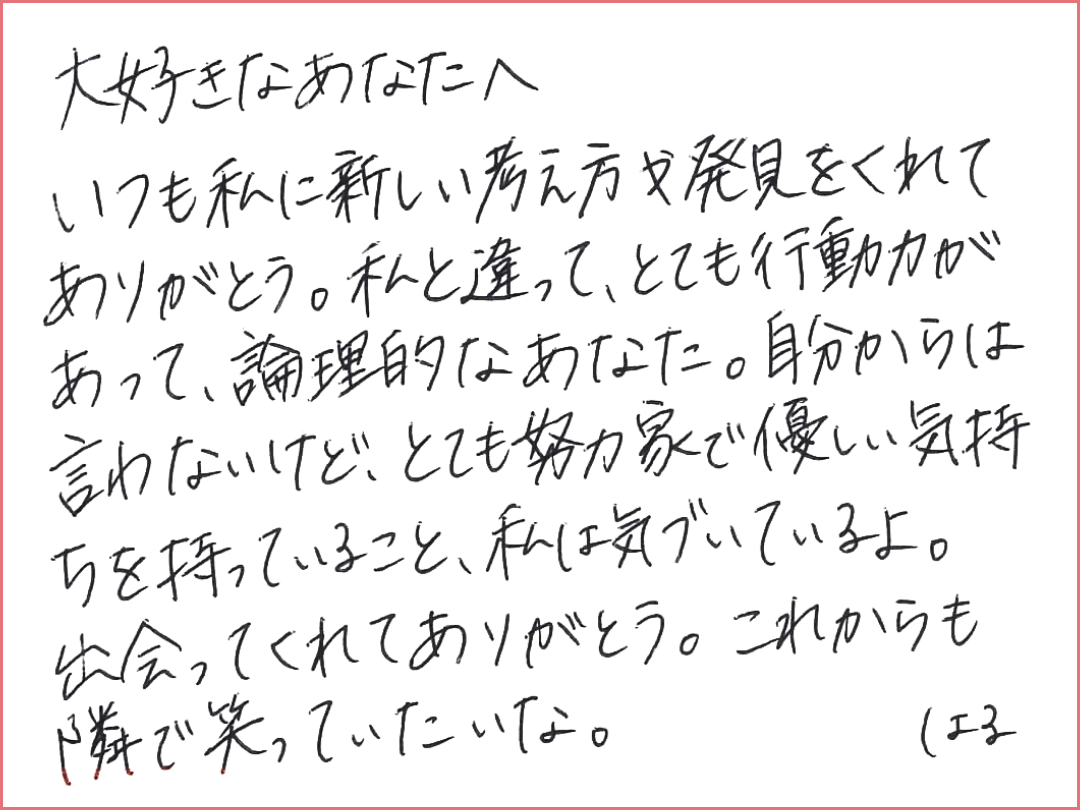 大好きなあなたへ
いつも私に新しい考え方や発見をくれて
ありがとう。私と違って、とても行動力が
あって、論理的なあなた。自分からは
言わないけど、とても努力家で優しい気持
ちを持っていること、私は気づいているよ。
出会ってくれてありがとう。これからも
隣で笑っていたいな。
はる